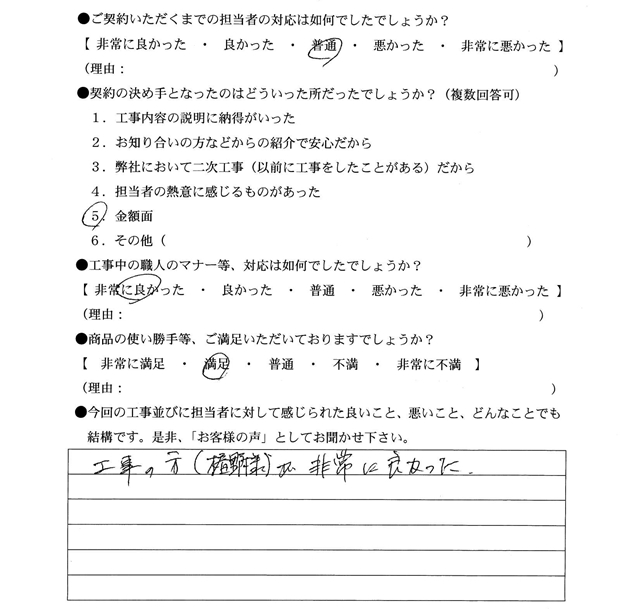 ●ご契約いただくまでの担当者の対応は如何でしたでしょうか？
【 非常に良かった ・ 良かった ・ 普通 ・ 悪かった ・ 非常に悪かった 】
（理由： ）
●契約の決め手となったのはどういった所だったでしょうか？（複数回答可）
1．工事内容の説明に納得がいった
2．お知り合いの方などからの紹介で安心だから
3．弊社において二次工事（以前に工事をしたことがある）だから
4．担当者の熱意に感じるものがあった
5．金額面
6．その他（ ）
●工事中の職人のマナー等、対応は如何でしたでしょうか？
【 非常に良かった ・ 良かった ・ 普通 ・ 悪かった ・ 非常に悪かった 】
（理由： ）
●商品の使い勝手等、ご満足いただいておりますでしょうか？
【 非常に満足 ・ 満足 ・ 普通 ・ 不満 ・ 非常に不満 】
（理由： ）
●今回の工事並びに担当者に対して感じられた良いこと、悪いこと、どんなことでも
結構です。是非、「お客様の声」としてお聞かせ下さい。
工事の方（植野様）が非常に良かった.